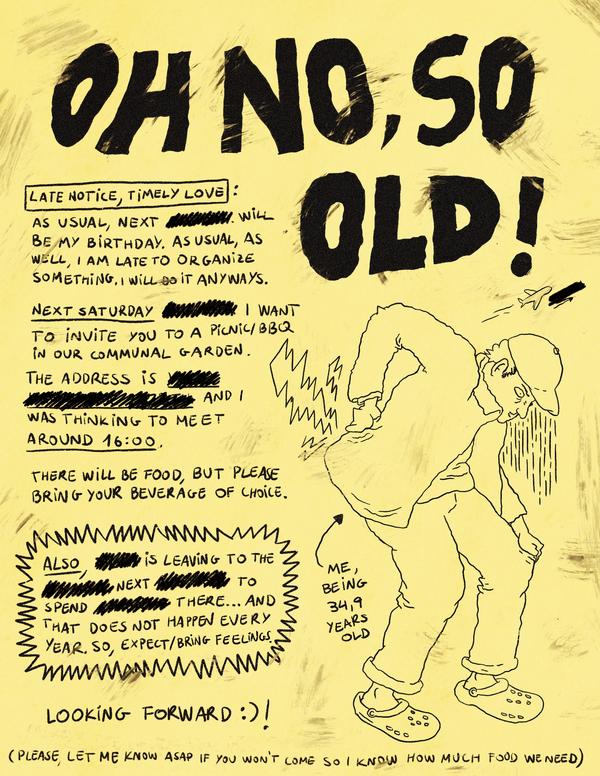 OH NO, SO
OLD!
LATE NOTICE, TIMELY LOVE:
AS USUAL, NEXT WILL
BE MY BIRTHDAY. AS USUAL, AS
WELL, I AM LATE TO ORGANIZE
SOMETHING, I WILL DO IT ANYWAYS.
NEXT SATURDAY I WANT
TO INVITE YOU TO A PICNIC/BBQ
IN OUR COMMUNAL GARDEN.
THE ADDRESS IS
AND I
WAS THINKING TO MEET
AROUND 16:00.
THERE WILL BE FOOD, BUT PLEASE
BRING YOUR BEVERAGE OF CHOICE.
ALSO, IS LEAVING TO THE
NEXT TO
SPEND THERE... AND
THAT DOES NOT HAPPEN EVERY
YEAR. SO, EXPECT/BRING FEELINGS.
ME,
BEING
34,9
YEARS
OLD
LOOKING FORWARD :)!
(PLEASE, LET ME KNOW ASAP IF YOU WON'T COME SO I KNOW HOW MUCH FOOD WE NEED)